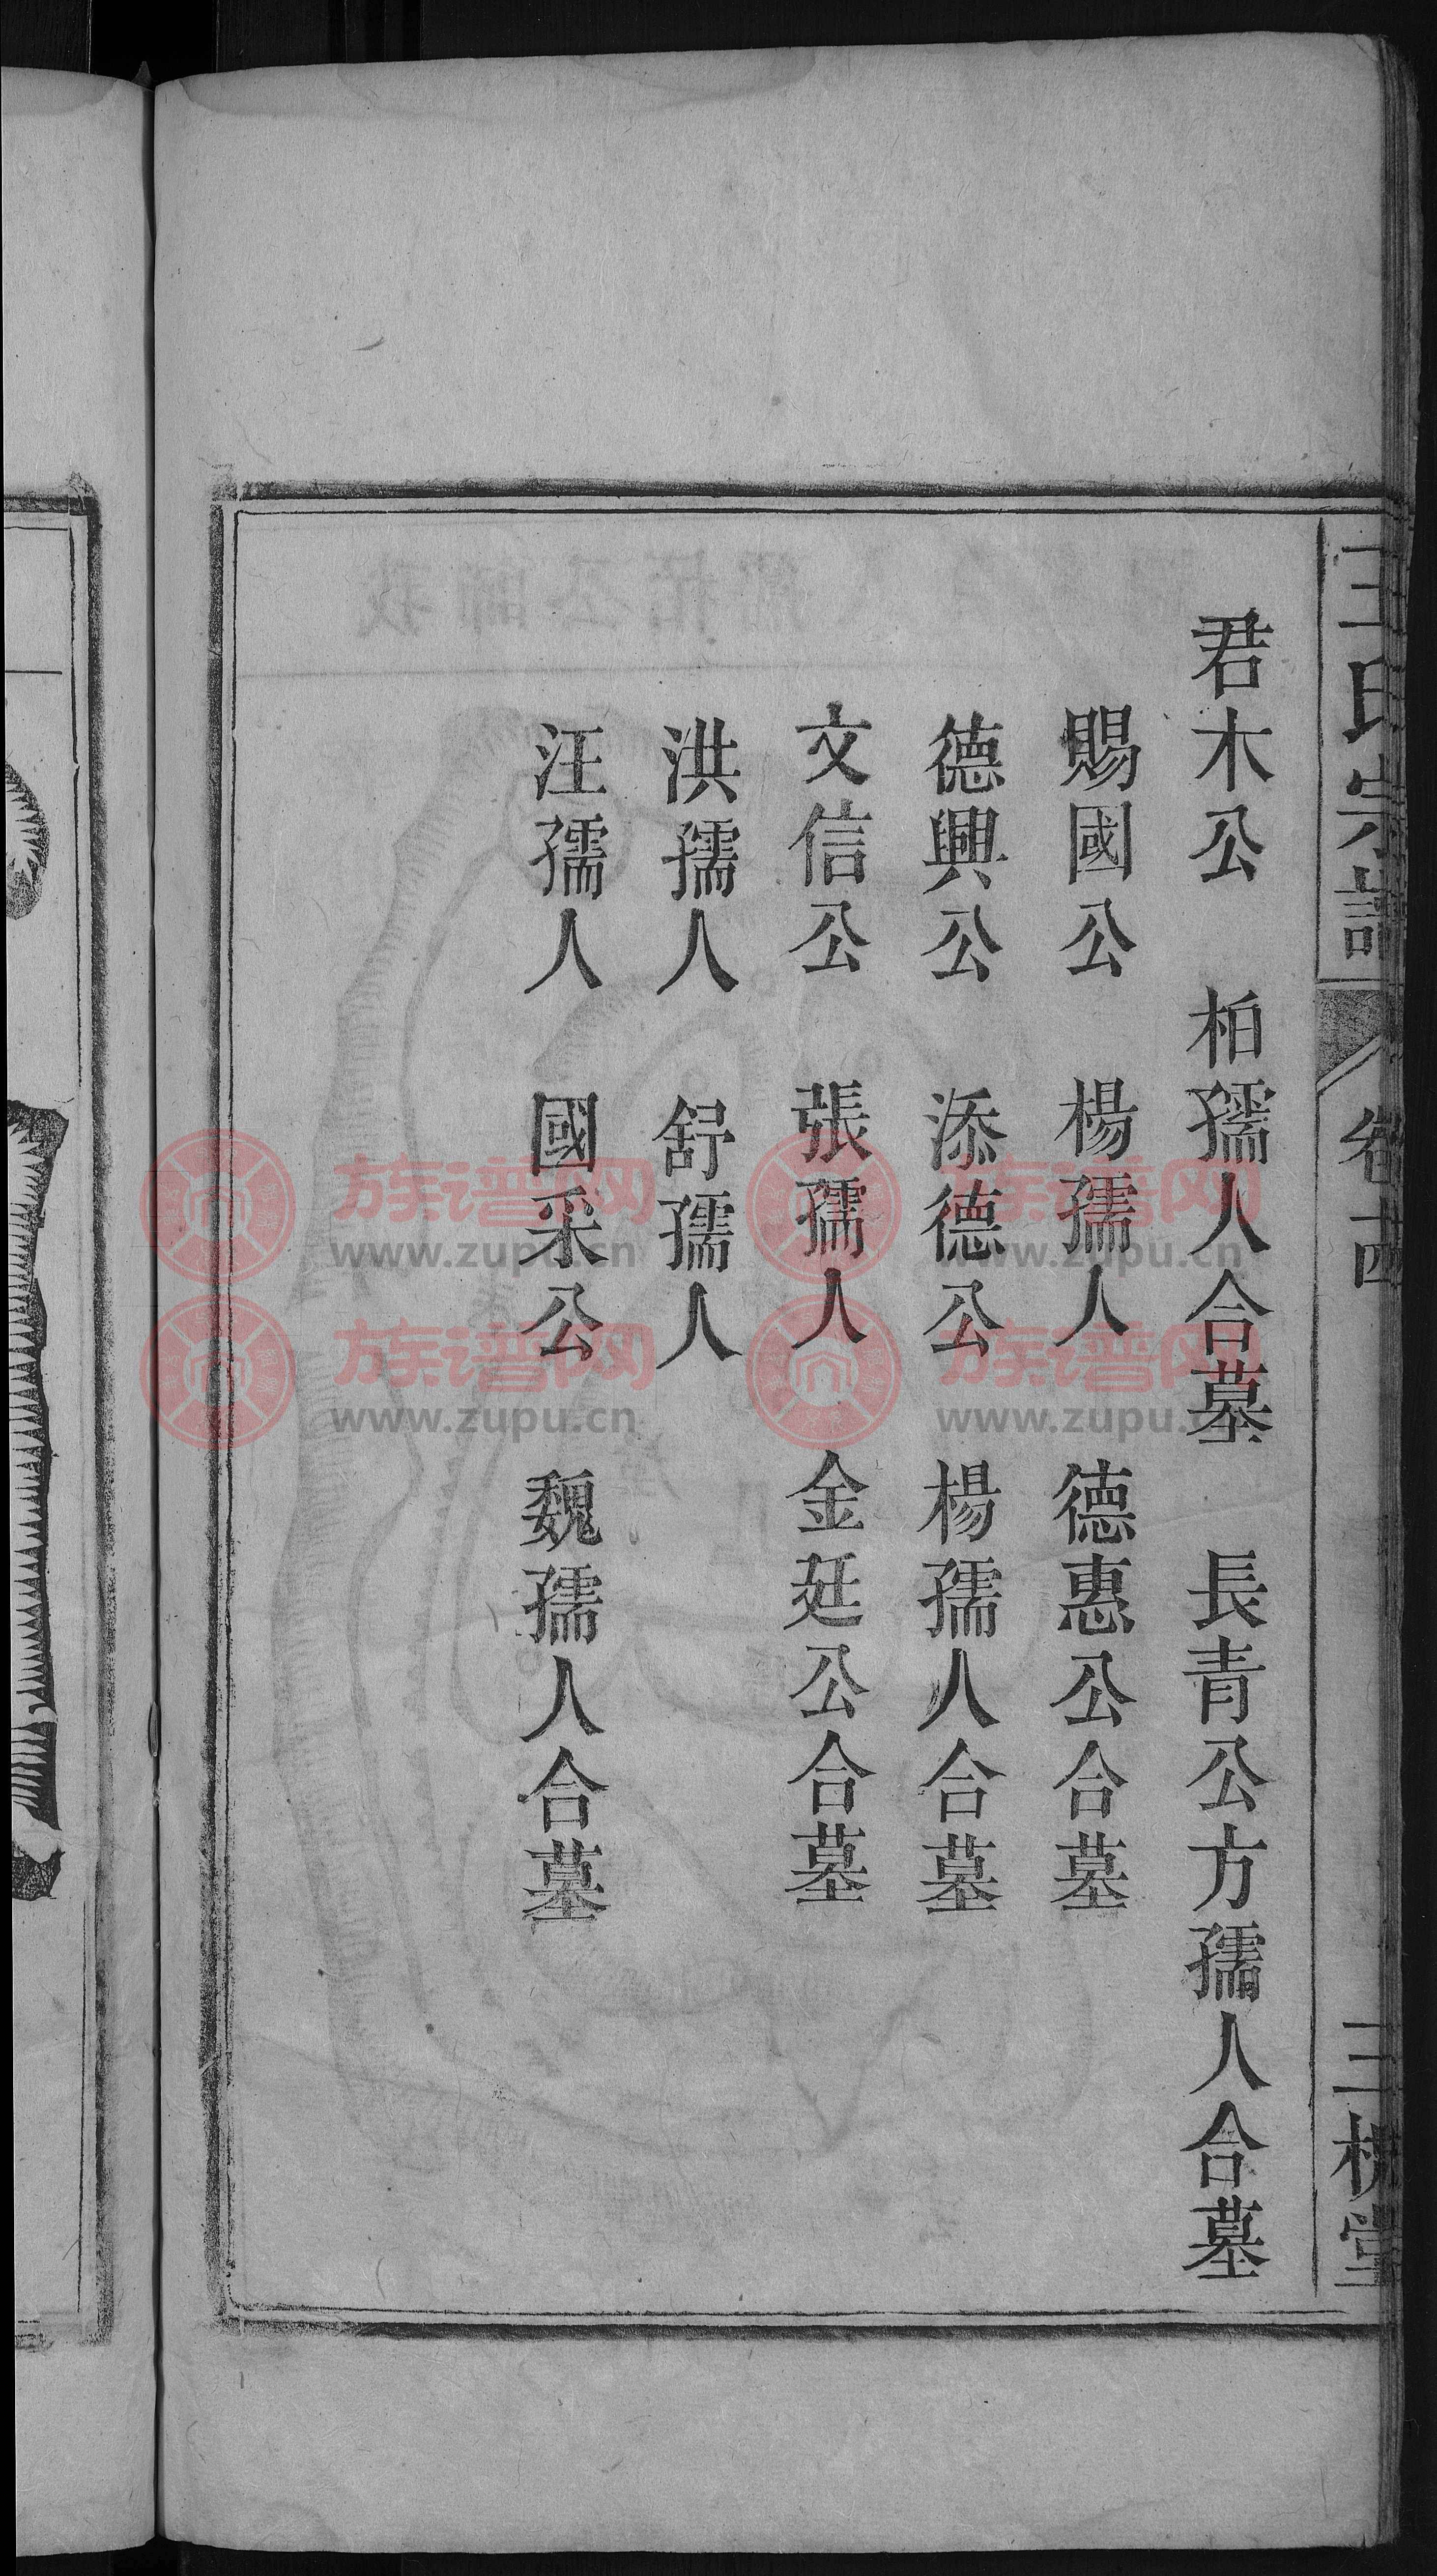 王氏宗譜 卷十四 三槐堂
君木公 柏孺人合墓 長青公方孺人合墓
賜國公 楊孺人 德惠公合墓
德興公 添德公 楊孺人合墓
文信公 張孺人 金廷公合墓
洪孺人 舒孺人
汪孺人 國采公 魏孺人合墓
族谱网
www.zupu.cn
族谱网
www.zupu.cn
族谱网
www.zupu.cn
族谱网
www.zupu.cn